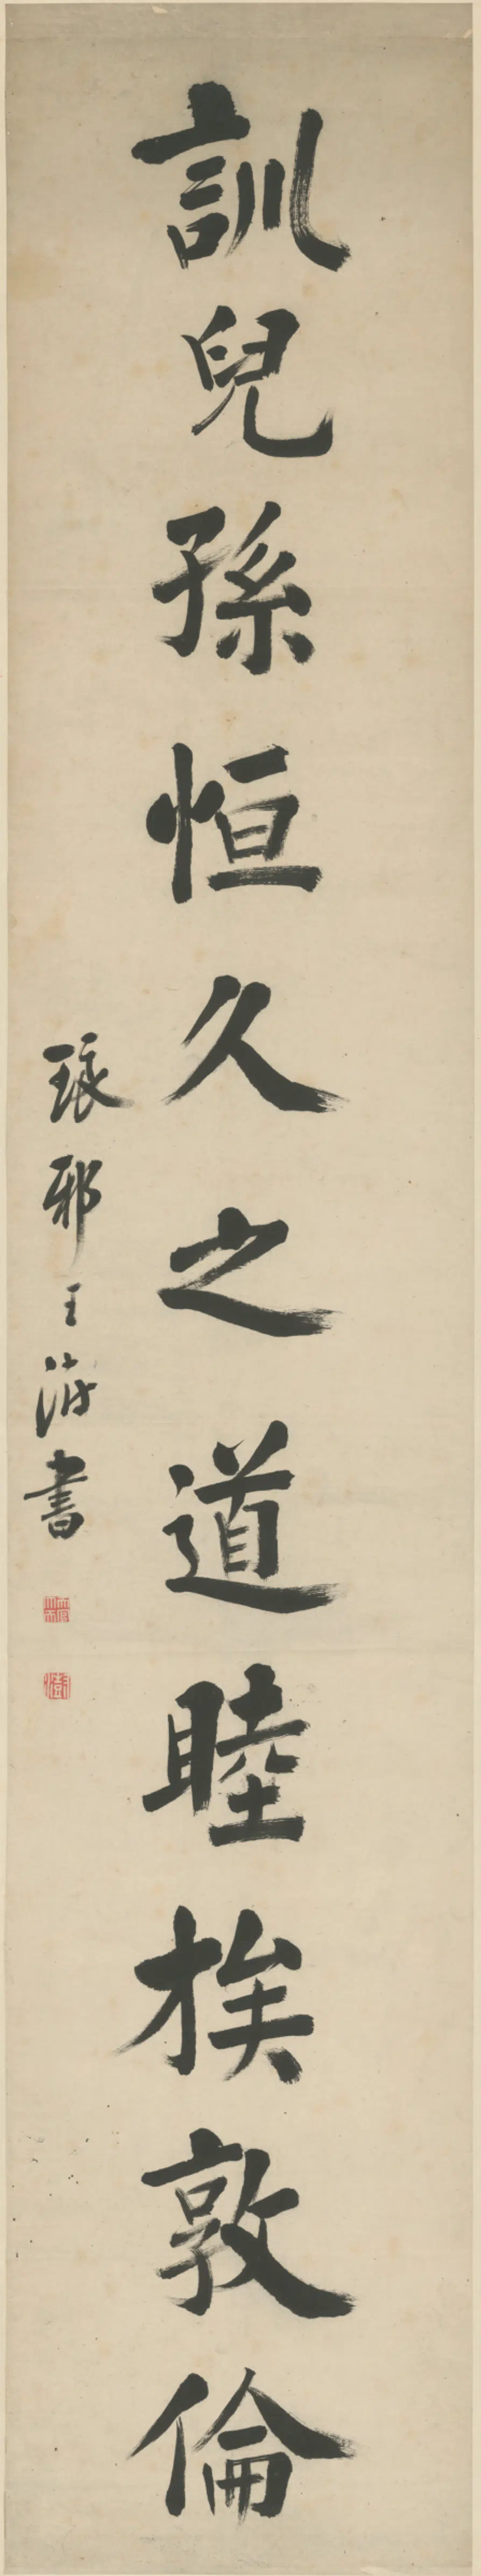 訓兒孫恒久之道睦族敦倫
琅邪王澍書